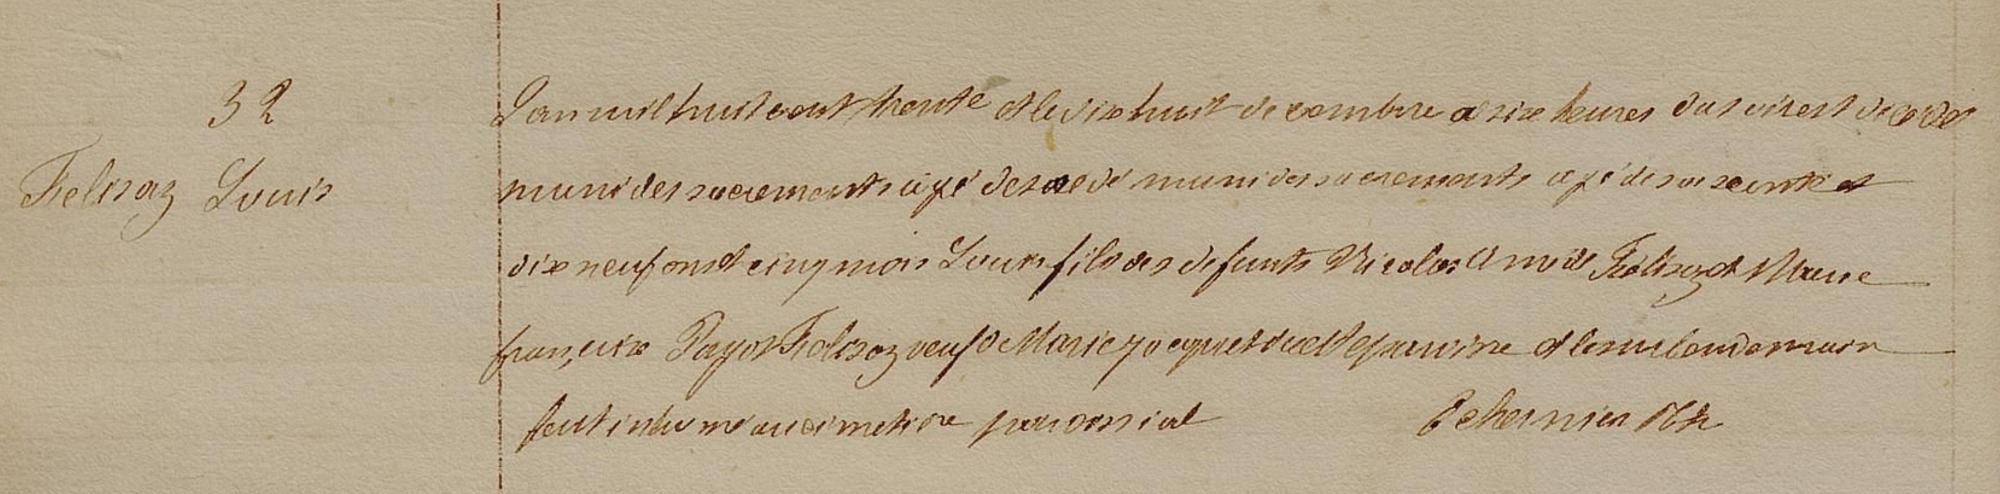 32
Felisaz Louis
L'an mil huit cent trente et le dix huit decembre a six heures du soir est décédé
muni des sacrements agé des décédé muni des sacrements agé de soixante et
dix neuf ans et cinq mois Louis fils des defunts Nicolas Amé Felisaz et Marie
françoise Payot Felisaz veuf de Marie Jacquet de cette paroisse et le sur lendemain
fut inhumé au cimetiere paroissial